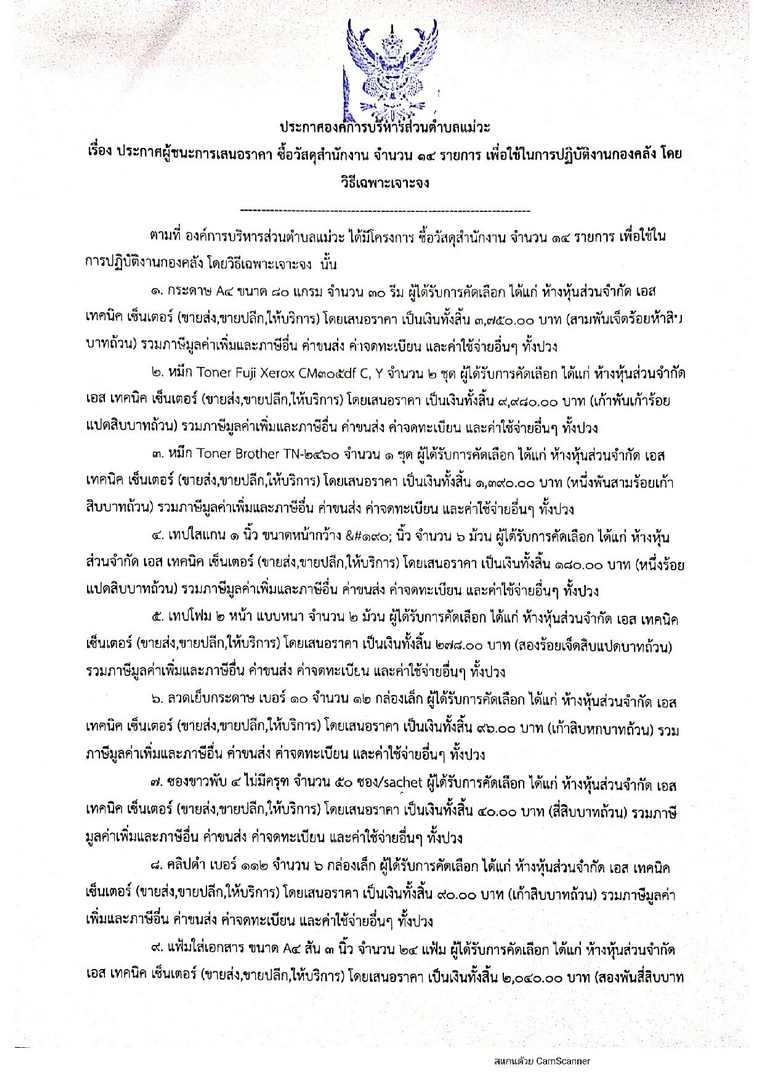 ประกาศองค์การบริหารส่วนตำบลแม่วะ
เรื่อง ประกาศผู้ชนะการเสนอราคา ซื้อวัสดุสำนักงาน จำนวน ๑๔ รายการ เพื่อใช้ในการปฏิบัติงานกองคลัง โดย
วิธีเฉพาะเจาะจง
--------------------------------------------------------------------
ตามที่ องค์การบริหารส่วนตำบลแม่วะ ได้มีโครงการ ซื้อวัสดุสำนักงาน จำนวน ๑๔ รายการ เพื่อใช้ใน
การปฏิบัติงานกองคลัง โดยวิธีเฉพาะเจาะจง นั้น
๑. กระดาษ A๔ ขนาด ๘๐ แกรม จำนวน ๓๐ รีม ผู้ได้รับการคัดเลือก ได้แก่ ห้างหุ้นส่วนจำกัด เอส
เทคนิค เซ็นเตอร์ (ขายส่ง,ขายปลีก,ให้บริการ) โดยเสนอราคา เป็นเงินทั้งสิ้น ๓,๗๕๐.๐๐ บาท (สามพันเจ็ดร้อยห้าสิบ
บาทถ้วน) รวมภาษีมูลค่าเพิ่มและภาษีอื่น ค่าขนส่ง ค่าจดทะเบียน และค่าใช้จ่ายอื่นๆ ทั้งปวง
๒. หมึก Toner Fuji Xerox CM๓๐๕df C, Y จำนวน ๒ ชุด ผู้ได้รับการคัดเลือก ได้แก่ ห้างหุ้นส่วนจำกัด
เอส เทคนิค เซ็นเตอร์ (ขายส่ง,ขายปลีก,ให้บริการ) โดยเสนอราคา เป็นเงินทั้งสิ้น ๙,๙๘๐.๐๐ บาท (เก้าพันเก้าร้อย
แปดสิบบาทถ้วน) รวมภาษีมูลค่าเพิ่มและภาษีอื่น ค่าขนส่ง ค่าจดทะเบียน และค่าใช้จ่ายอื่นๆ ทั้งปวง
๓. หมึก Toner Brother TN-๒๔๖๐ จำนวน ๑ ชุด ผู้ได้รับการคัดเลือก ได้แก่ ห้างหุ้นส่วนจำกัด เอส
เทคนิค เซ็นเตอร์ (ขายส่ง,ขายปลีก,ให้บริการ) โดยเสนอราคา เป็นเงินทั้งสิ้น ๑,๓๙๐.๐๐ บาท (หนึ่งพันสามร้อยเก้า
สิบบาทถ้วน) รวมภาษีมูลค่าเพิ่มและภาษีอื่น ค่าขนส่ง ค่าจดทะเบียน และค่าใช้จ่ายอื่นๆ ทั้งปวง
๔. เทปใสแกน ๑ นิ้ว ขนาดหน้ากว้าง &#๑๙๐; นิ้ว จำนวน ๖ ม้วน ผู้ได้รับการคัดเลือก ได้แก่ ห้างหุ้น
ส่วนจำกัด เอส เทคนิค เซ็นเตอร์ (ขายส่ง,ขายปลีก,ให้บริการ) โดยเสนอราคา เป็นเงินทั้งสิ้น ๑๘๐.๐๐ บาท (หนึ่งร้อย
แปดสิบบาทถ้วน) รวมภาษีมูลค่าเพิ่มและภาษีอื่น ค่าขนส่ง ค่าจดทะเบียน และค่าใช้จ่ายอื่นๆ ทั้งปวง
๕. เทปโฟม ๒ หน้า แบบหนา จำนวน ๒ ม้วน ผู้ได้รับการคัดเลือก ได้แก่ ห้างหุ้นส่วนจำกัด เอส เทคนิค
เซ็นเตอร์ (ขายส่ง,ขายปลีก,ให้บริการ) โดยเสนอราคา เป็นเงินทั้งสิ้น ๒๗๘.๐๐ บาท (สองร้อยเจ็ดสิบแปดบาทถ้วน)
รวมภาษีมูลค่าเพิ่มและภาษีอื่น ค่าขนส่ง ค่าจดทะเบียน และค่าใช้จ่ายอื่นๆ ทั้งปวง
๖. ลวดเย็บกระดาษ เบอร์ ๑๐ จำนวน ๑๒ กล่องเล็ก ผู้ได้รับการคัดเลือก ได้แก่ ห้างหุ้นส่วนจำกัด เอส
เทคนิค เซ็นเตอร์ (ขายส่ง,ขายปลีก,ให้บริการ) โดยเสนอราคา เป็นเงินทั้งสิ้น ๙๖.๐๐ บาท (เก้าสิบหกบาทถ้วน) รวม
ภาษีมูลค่าเพิ่มและภาษีอื่น ค่าขนส่ง ค่าจดทะเบียน และค่าใช้จ่ายอื่นๆ ทั้งปวง
๗. ซองขาวพับ ๔ ไม่มีครุฑ จำนวน ๕๐ ซอง/sachet ผู้ได้รับการคัดเลือก ได้แก่ ห้างหุ้นส่วนจำกัด เอส
เทคนิค เซ็นเตอร์ (ขายส่ง,ขายปลีก,ให้บริการ) โดยเสนอราคา เป็นเงินทั้งสิ้น ๔๐.๐๐ บาท (สี่สิบบาทถ้วน) รวมภาษี
มูลค่าเพิ่มและภาษีอื่น ค่าขนส่ง ค่าจดทะเบียน และค่าใช้จ่ายอื่นๆ ทั้งปวง
๘. คลิปดำ เบอร์ ๑๑๒ จำนวน ๖ กล่องเล็ก ผู้ได้รับการคัดเลือก ได้แก่ ห้างหุ้นส่วนจำกัด เอส เทคนิค
เซ็นเตอร์ (ขายส่ง,ขายปลีก,ให้บริการ) โดยเสนอราคา เป็นเงินทั้งสิ้น ๙๐.๐๐ บาท (เก้าสิบบาทถ้วน) รวมภาษีมูลค่า
เพิ่มและภาษีอื่น ค่าขนส่ง ค่าจดทะเบียน และค่าใช้จ่ายอื่นๆ ทั้งปวง
๙. แฟ้มใส่เอกสาร ขนาด A๔ สัน ๓ นิ้ว จำนวน ๒๔ แฟ้ม ผู้ได้รับการคัดเลือก ได้แก่ ห้างหุ้นส่วนจำกัด
เอส เทคนิค เซ็นเตอร์ (ขายส่ง,ขายปลีก,ให้บริการ) โดยเสนอราคา เป็นเงินทั้งสิ้น ๒,๐๔๐.๐๐ บาท (สองพันสี่สิบบาท
สแกนด้วย CamScanner